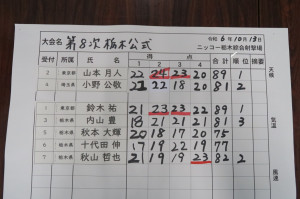 令和 6年10月13日
大会名 第8次栃木公式
ニッコー栃木綜合射撃場
受付 氏名 得点 合計 順位 摘要 天候
1 2 3 4
2 東京都 山本 月人 22 24 23 20 89 1
4 埼玉県 小野 公敬 21 22 18 20 81 2
1 東京都 鈴木 祐 21 23 23 22 89 1
3 栃木県 内山 豊 18 21 21 21 81 3
5 栃木県 秋本 大輝 20 18 20 17 75
6 栃木県 十代田 伸 17 19 22 19 77
7 栃木県 秋山 哲也 21 19 19 23 82 2
気温
風速